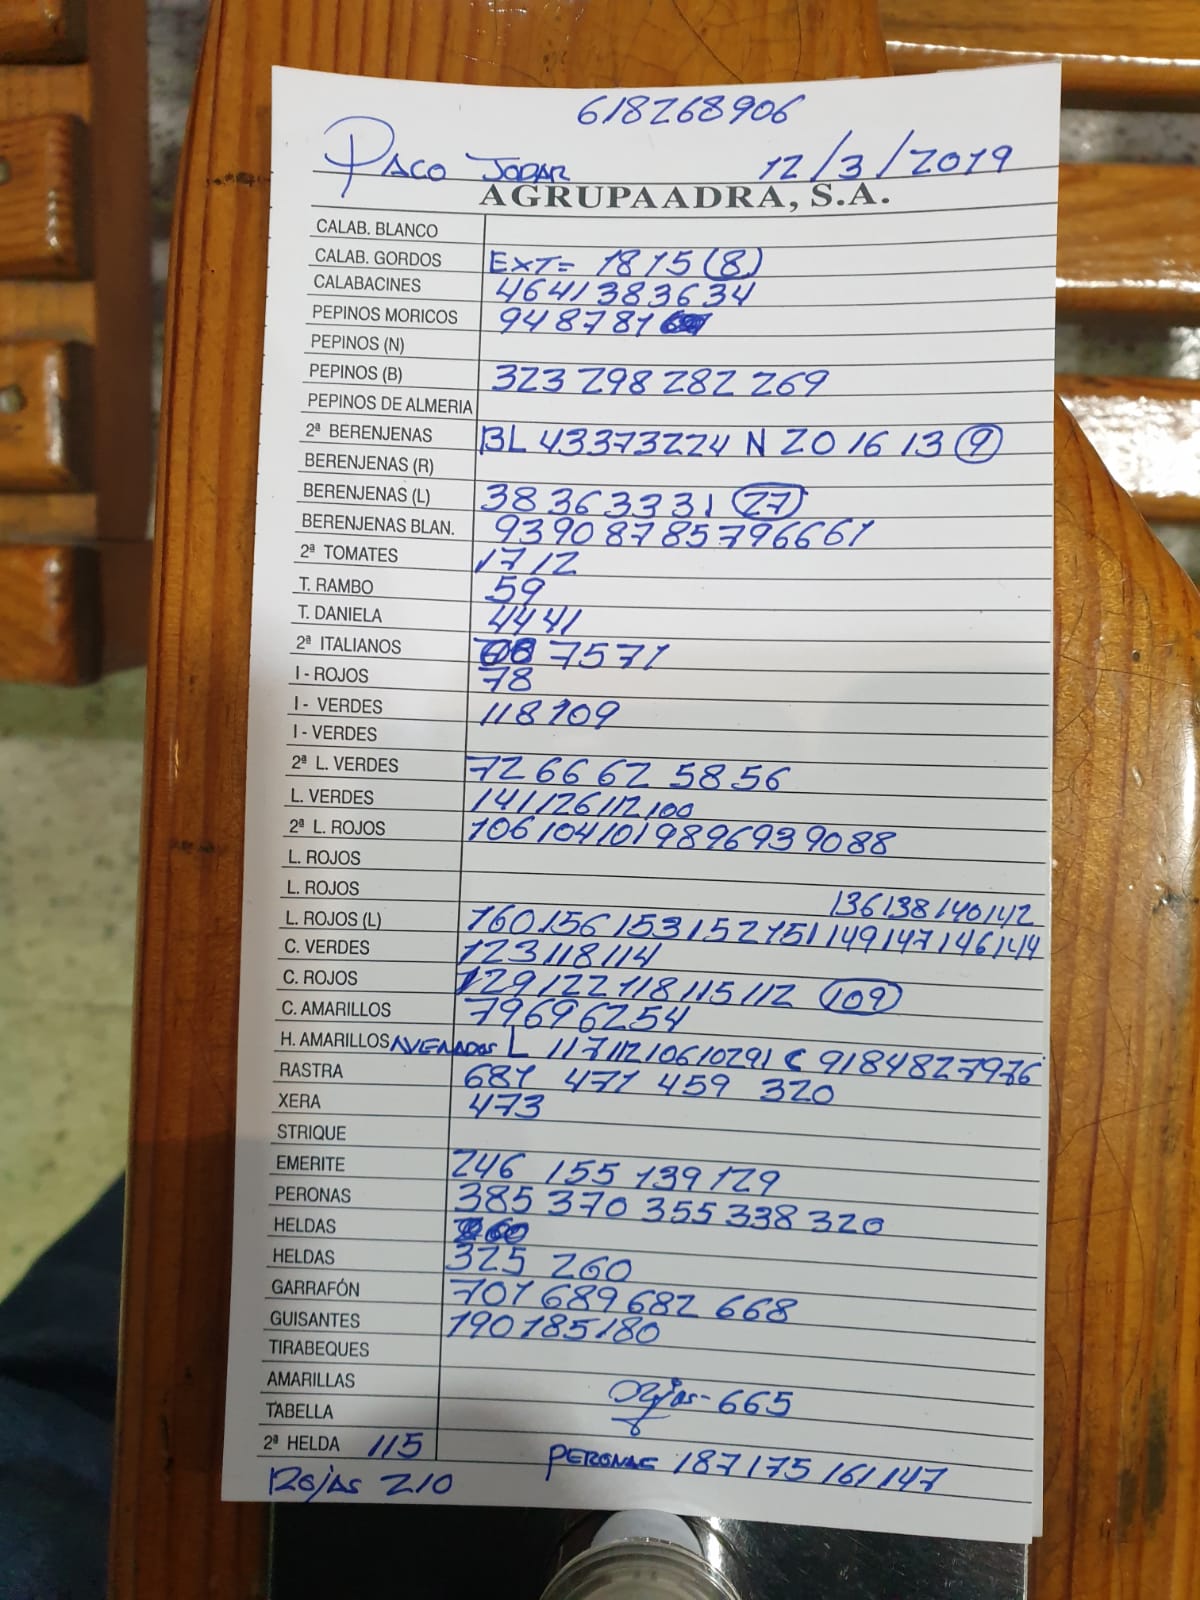 618268906
PACO JODAR 12/3/2019
AGRUPAADRA, S.A.
CALAB. BLANCO
CALAB. GORDOS EXT= 18 15 (8)
CALABACINES 46 41 38 36 34
PEPINOS MORICOS 94 87 81
PEPINOS (N)
PEPINOS (B) 323 298 282 269
PEPINOS DE ALMERIA
2ª BERENJENAS BL 43 37 32 24 N 20 16 13 9
BERENJENAS (R)
BERENJENAS (L) 38 36 33 31 27
BERENJENAS BLAN. 93 90 87 85 79 66 61
2ª TOMATES 17 12
T. RAMBO 59
T. DANIELA 44 41
2ª ITALIANOS 75 71
I - ROJOS 78
I - VERDES 118 109
I - VERDES
2ª L. VERDES 72 66 62 58 56
L. VERDES 141 126 112 100
2ª L. ROJOS 106 104 101 98 96 93 90 88
L. ROJOS
L. ROJOS 136 138 140 142
L. ROJOS (L) 160 156 153 152 151 149 147 146 144
C. VERDES 123 118 114
C. ROJOS 129 122 118 115 112 109
C. AMARILLOS 79 69 62 54
H. AMARILLOS AVENADOS L 117 112 106 102 91 C 91 84 82 79 76
RASTRA 681 471 459 320
XERA 473
STRIQUE
EMERITE 246 155 139 129
PERONAS 385 370 355 338 320
HELDAS
HELDAS 325 260
GARRAFÓN 701 689 682 668
GUISANTES 190 185 180
TIRABEQUES
AMARILLAS 665
TABELLA
2ª HELDA 115 PERONAS 187 175 161 147
ROJAS 210